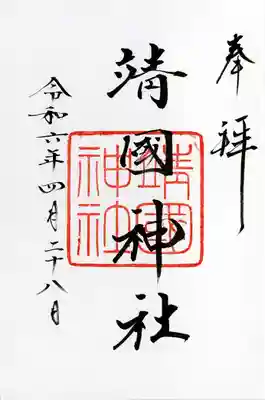 奉拝
靖國神社
靖國神社
令和六年四月二十八日